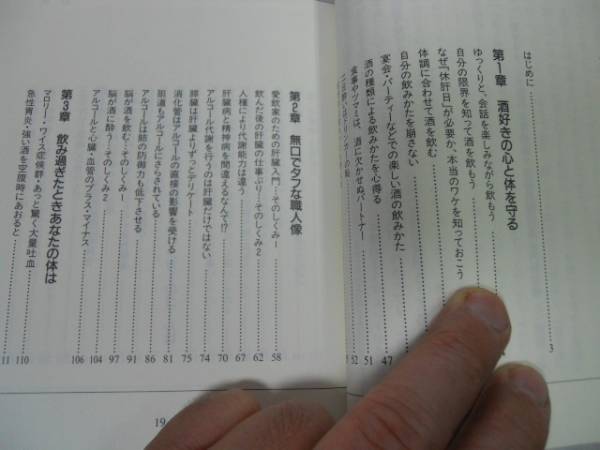 はじめに……3
第1章 酒好きの心と体を守る
ゆっくりと、会話を楽しみながら飲もう
自分の限界を知って酒を飲もう
なぜ「休肝日」が必要か、本当のワケを知っておこう
体調に合わせて酒を飲む
自分の飲みかたを崩さない
宴会・パーティーなどでの楽しい酒の飲みかた……47
酒の種類による飲みかたを心得る……51
食事やツマミは、酒に欠かせぬパートナー……52
第2章 無口でタフな職人像
愛飲家のための肝臓入門…そのしくみ1……58
飲んだ後の肝臓の仕事ぶり…そのしくみ2……62
人種により代謝能力は違う……67
肝臓病と精神病を間違えるなんて!?……70
アルコール代謝を行うのは肝臓だけではない……74
膵臓は肝臓よりずっとデリケート……75
消化管はアルコールの直接の影響を受ける……81
胆道もアルコールにさらされている……86
アルコールは肺の防衛力も低下させる……91
脳が酒を飲む…そのしくみ1……97
脳が酒に酔う…そのしくみ2……104
アルコールと心臓・血管のプラス・マイナス……106
第3章 飲み過ぎたときあなたの体は
マロリー・ワイス症候群・あっと驚く大量吐血……110
急性胃炎・強い酒を空腹時にあおると……11
19